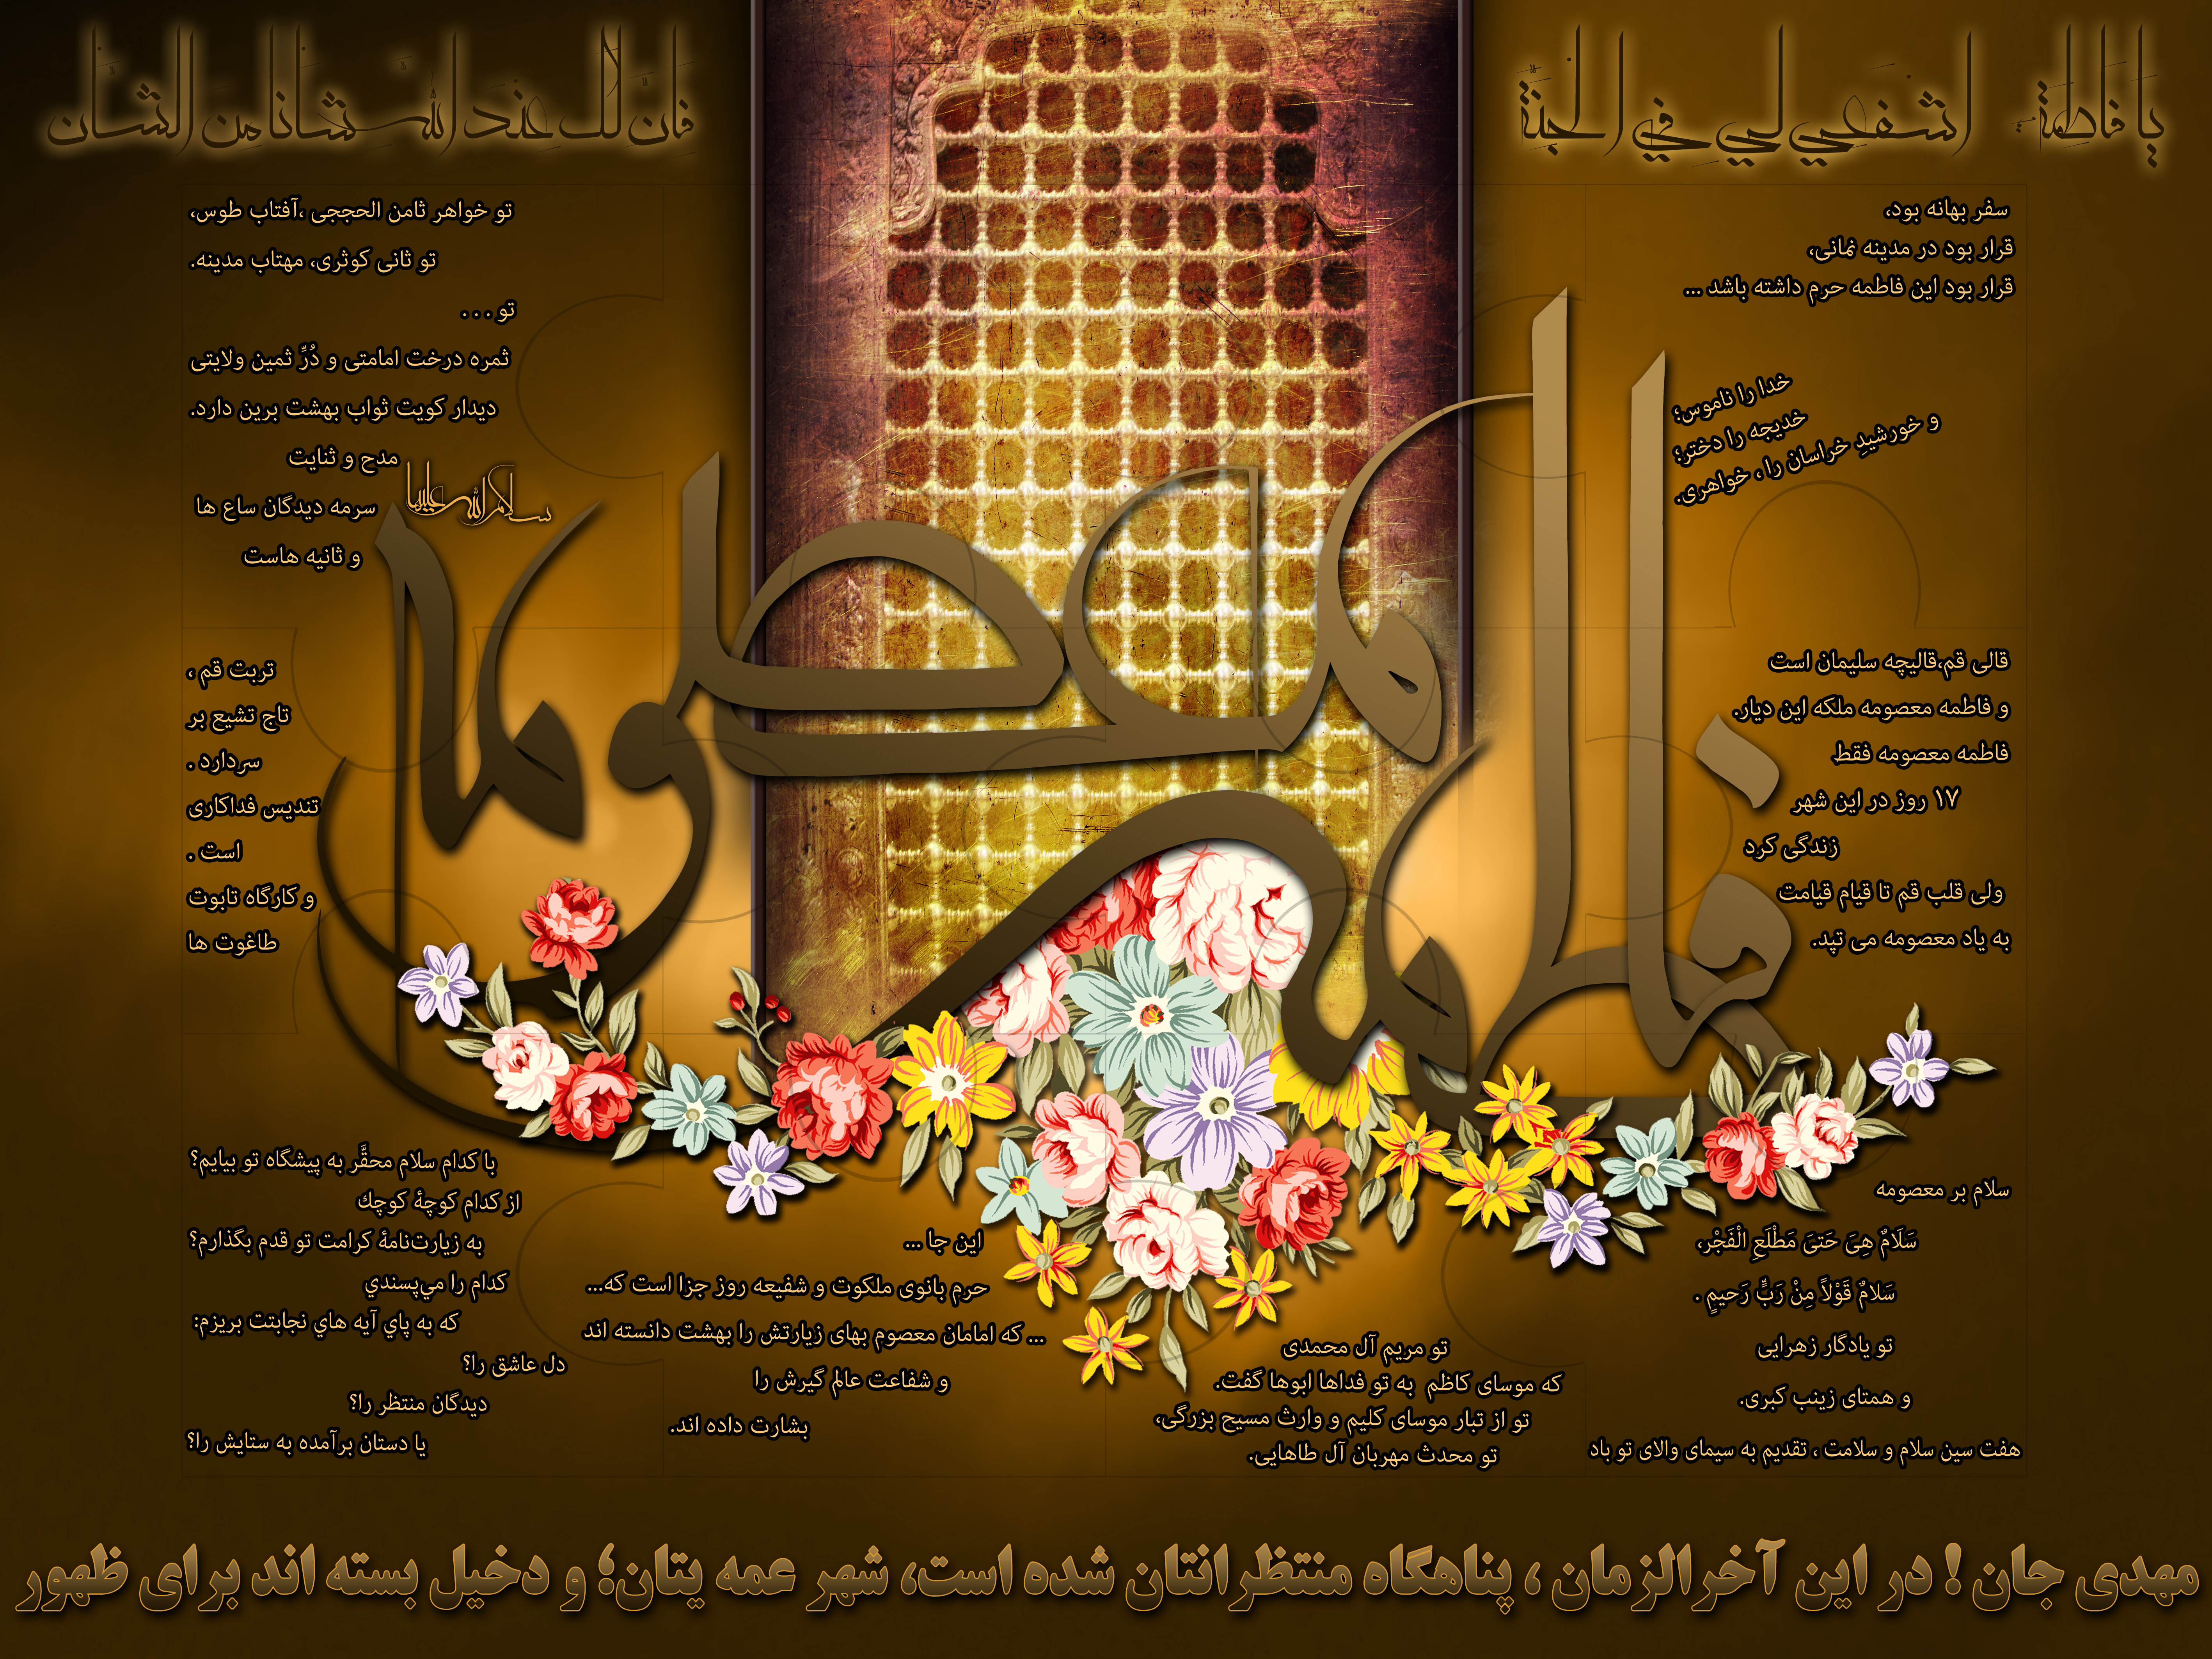 يا فاطمة اشفعي لي في الجنة
فان لك عند الله شانا من الشان
سفر بهانه بود،
قرار بود در مدینه نمانی،
قرار بود این فاطمه حرم داشته باشد ...
خدا را ناموس؛
خدیجه را دختر؛
و خورشیدِ خراسان را ، خواهری.
تو خواهر ثامن الحججی ،آفتاب طوس،
تو ثانی کوثری، مهتاب مدینه.
تو . . .
ثمره درخت امامتی و دُرِّ ثمین ولایتی
دیدار کویت ثواب بهشت برین دارد.
مدح و ثنایت
سرمه دیدگان ساع ها
و ثانیه هاست
سلام الله علیها
فاطمه معصومه
قالی قم،قالیچه سلیمان است
و فاطمه معصومه ملکه این دیار.
فاطمه معصومه فقط
۱۷ روز در این شهر
زندگی کرد
ولی قلب قم تا قیام قیامت
به یاد معصومه می تپد.
تربت قم ،
تاج تشیع بر
سردارد .
تندیس فداکاری
است .
و کارگاه تابوت
طاغوت ها
سلام بر معصومه
سَلَامٌ هِیَ حَتیَ مَطْلَعِ الْفَجْر،
سَلامٌ قَوْلاً مِنْ رَبٍّ رَحیمٍ .
تو یادگار زهرایی
و همتای زینب کبری.
هفت سین سلام و سلامت ، تقدیم به سیمای والای تو باد
تو مریم آل محمدی
که موسای کاظم به تو فداها ابوها گفت.
تو از تبار موسای کلیم و وارث مسیح بزرگی،
تو محدث مهربان آل طاهایی.
این جا ...
حرم بانوی ملکوت و شفیعه روز جزا است که...
... که امامان معصوم بهای زیارتش را بهشت دانسته اند
و شفاعت عالم گیرش را
بشارت داده اند.
با کدام سلام محقَّر به پیشگاه تو بیایم؟
از کدام کوچۀ کوچك
به زیارت‌نامۀ کرامت تو قدم بگذارم؟
کدام را مي‌پسندي
که به پاي آیه هاي نجابتت بریزم:
دل عاشق را؟
دیدگان منتظر را؟
یا دستان برآمده به ستایش را؟
مهدی جان ! در این آخرالزمان ، پناهگاه منتظرانتان شده است، شهر عمه یتان؛ و دخیل بسته اند برای ظهور